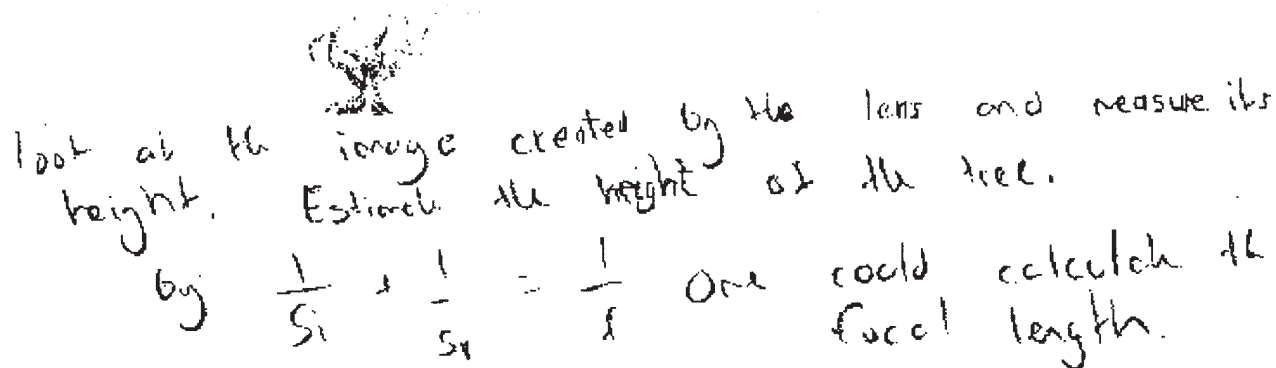 look at the image created by the lens and measure its
height. Estimate the height of the tree.
by 1/Si + 1/So = 1/f One could calculate the
focal length.